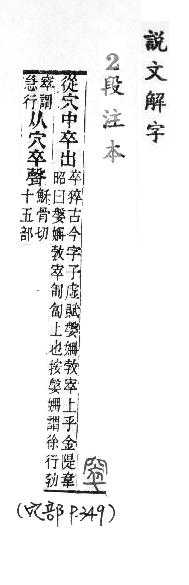 說文解字
2段注本
從穴中卒出
卒猝古今字子虛賦媻姍敎窣上乎金隄韋
昭曰媻姍敎窣匍匐上也按媻姍謂徐行勃
窣謂
急行
从穴卒聲
穌骨切
十五部
窣
(穴部 P.349)